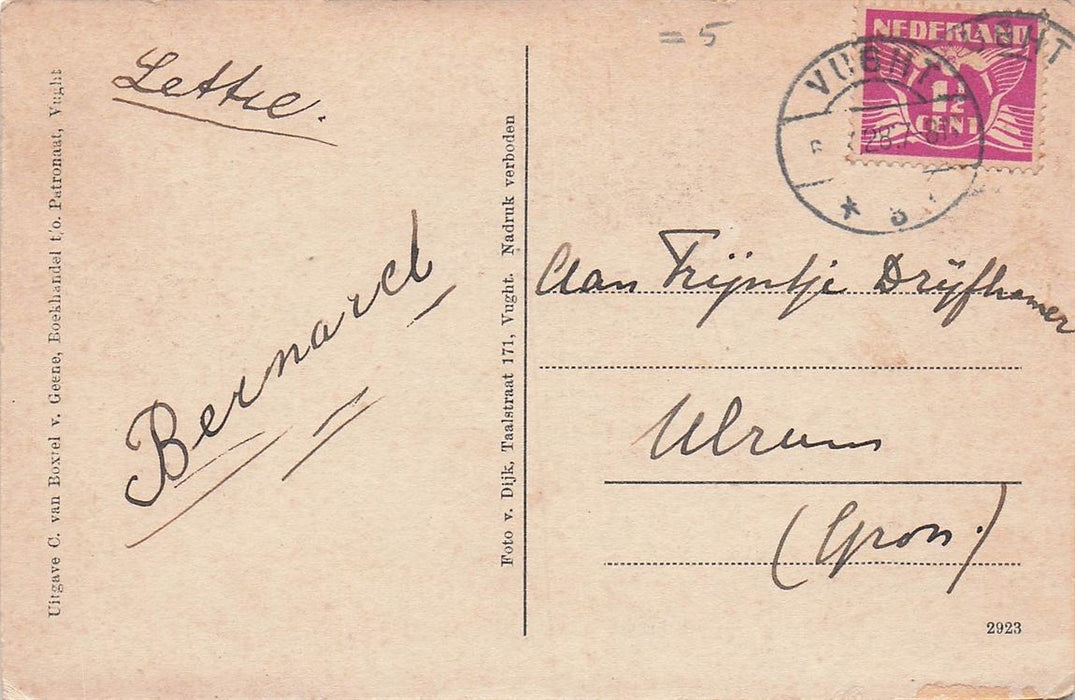 Uitgave C. van Boxtel v. Geene, Boekhandel t/o. Patronaat, Vught
Lettie.
Bernard
Foto v. Dijk, Taalstraat 171, Vught. Nadruk verboden
= 5
NEDERLAND
1½
CENT
VUGHT
Aan Trijntje Drijfhamer
Ulrum
(Gron.)
2923